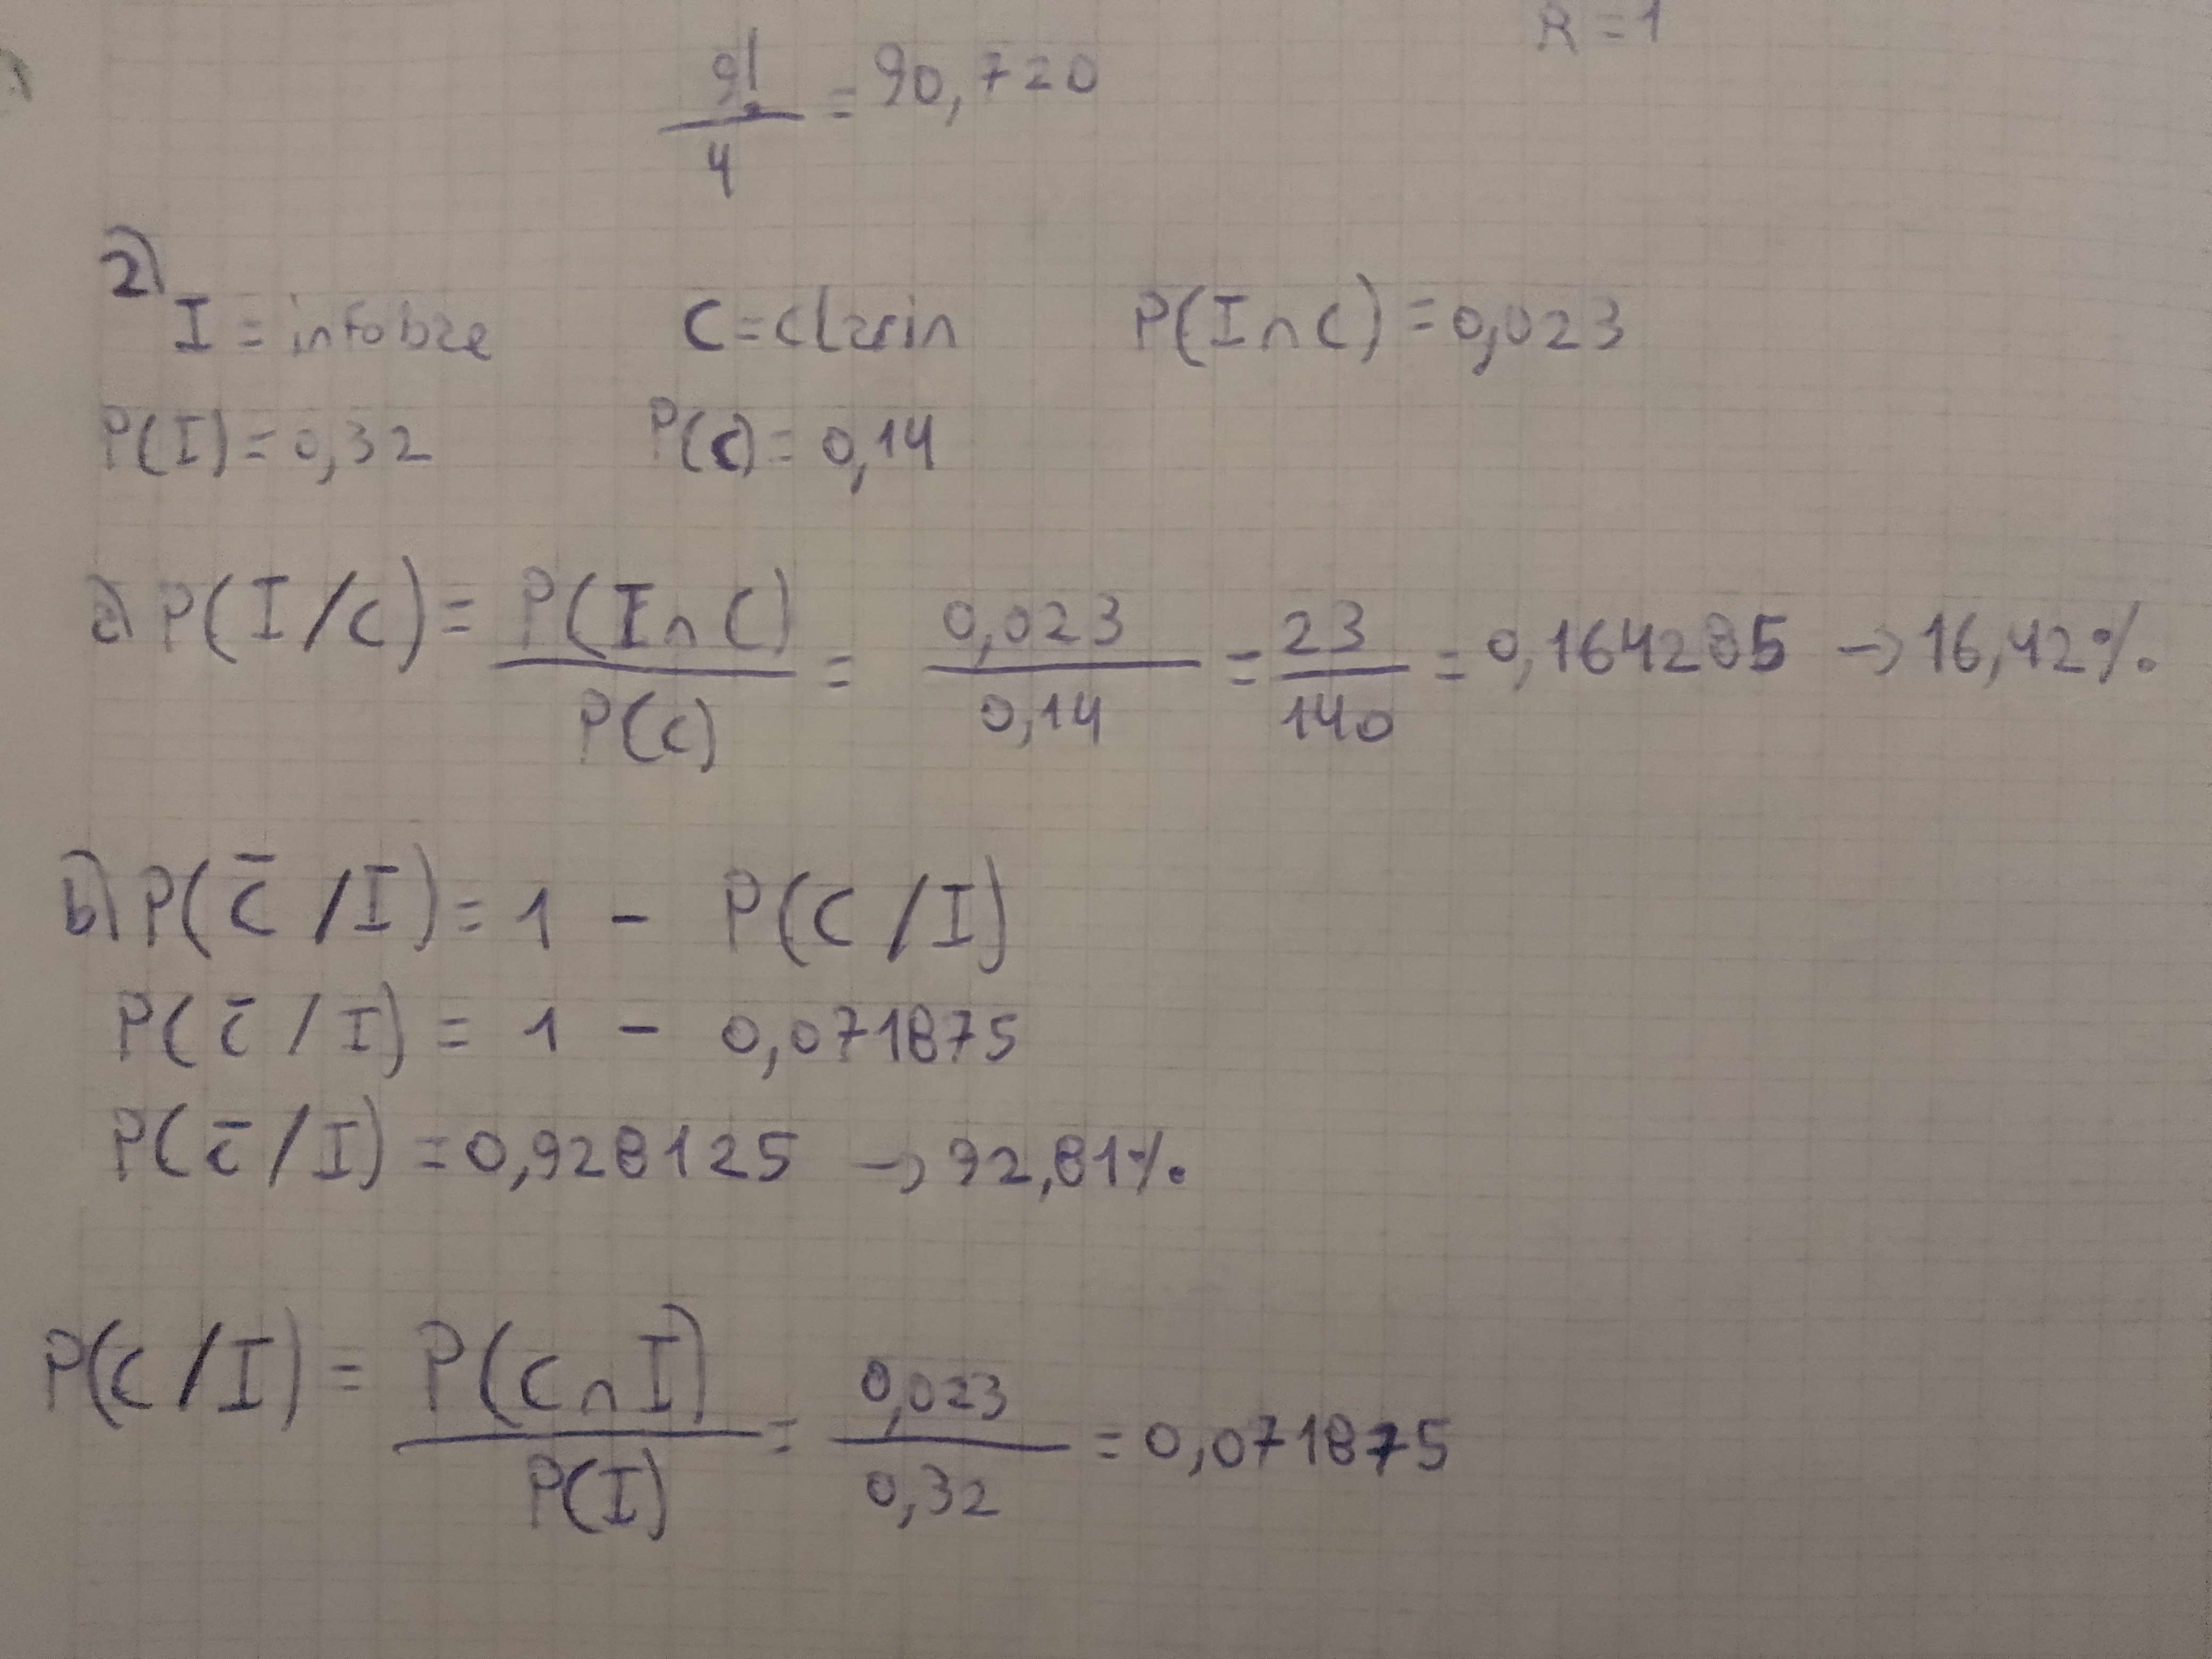 R = 1
9!/4 = 90,720
2)
I = infobae C = clarin P(I∩C) = 0,023
P(I) = 0,32 P(C) = 0,14
a) P(I/C) = P(I∩C)/P(C) = 0,023/0,14 = 23/140 = 0,164285 → 16,42%
b) P(C̄/I) = 1 - P(C/I)
P(C̄/I) = 1 - 0,071875
P(C̄/I) = 0,928125 → 92,81%
P(C/I) = P(C∩I)/P(I) = 0,023/0,32 = 0,071875